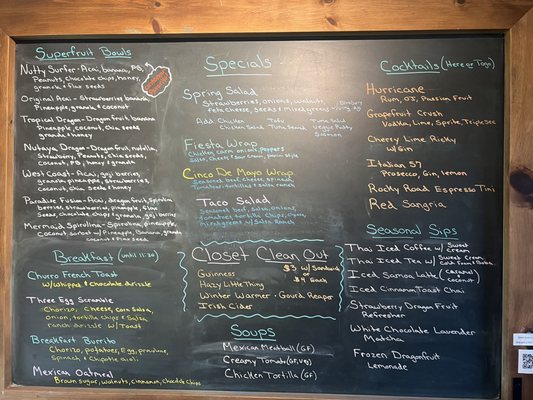 Superfruit Bowls
Nutty Surfer - Acai, banana, PB,
Peanuts, Chocolate chips, honey,
granola + flax seeds
Original Acai - Strawberries, banana,
Pineapple, granola + coconut
Tropical Dragon - Dragon fruit, banana
Pineapple, coconut, chia seeds
granola + honey
Nutaya Dragon - Dragon fruit, nutella,
Strawberry, Peanuts, chia seeds,
coconut, PB, honey + granola
West Coast - Acai, goji berries,
granola, pineapple, strawberries,
Coconut, chia seeds + honey
Paradise Fusion - Acai, dragon fruit, spirulina
berries, strawberries, pineapple, flax
seeds, chocolate chips + granola, goji berries
Mermaid Spirulina - Spirulina, pineapple,
coconut, w/ Pineapple, banana, granola
coconut + flax seed
Breakfast (until 11:30)
Churro French Toast
w/ whippes + chocolate drizzle
Three Egg Scramble
Chorizo, cheese, corn salsa,
onion, tortilla chips + salsa
ranch drizzle w/ Toast
Breakfast Burrito
Chorizo, potatoes, Egg, provolone,
Spinach + Chipotle aioli
Mexican Oatmeal
Brown sugar, walnuts, cinnamon, chocolate chips
Specials
Spring Salad
Strawberries, onions, walnuts
feta cheese, Seeds + mixed greens
Add Chicken Tofu Tuna Salad
Chicken Salad Tuna Seared Veggie Patty
Salmon
Fiesta Wrap
Chicken, corn, onions, peppers
Salsa, cheese + sour cream, panini style
Cinco De Mayo Wrap
Seasoned beef, cheese, spinach,
Tomatoes, tortillas + salsa ranch
Taco Salad
Seasoned beef, salsa, onions,
tomatoes, tortilla chips,
mixed greens w/ Salsa Ranch
Closet Clean Out
$3 w/ Sandwich
or
$4 Each
Guinness
Hazy Little Thing
Winter Warmer - Gourd Reaper
Irish Cider
Soups
Mexican Meatball (GF)
Creamy Tomato (GF, veg)
Chicken Tortilla (GF)
Cocktails (Here or Togo)
Hurricane
Rum, OJ, Passion Fruit
Grapefruit Crush
Vodka, Lime, Sprite, Triple Sec
Cherry Lime Ricky
w/ Gin
Italian 57
Prosecco, Gin, lemon
Rocky Road Espresso Tini
Red Sangria
Seasonal Sips
Thai Iced Coffee w/ Sweet
cream
Thai Iced Tea w/ Sweet Cream
Cold Foam + Boba
Iced Samoa Latte (Caramel)
Coconut
Iced Cinnamon Toast Chai
Strawberry Dragon Fruit
Refresher
White Chocolate Lavender
Matcha
Frozen Dragonfruit
Lemonade